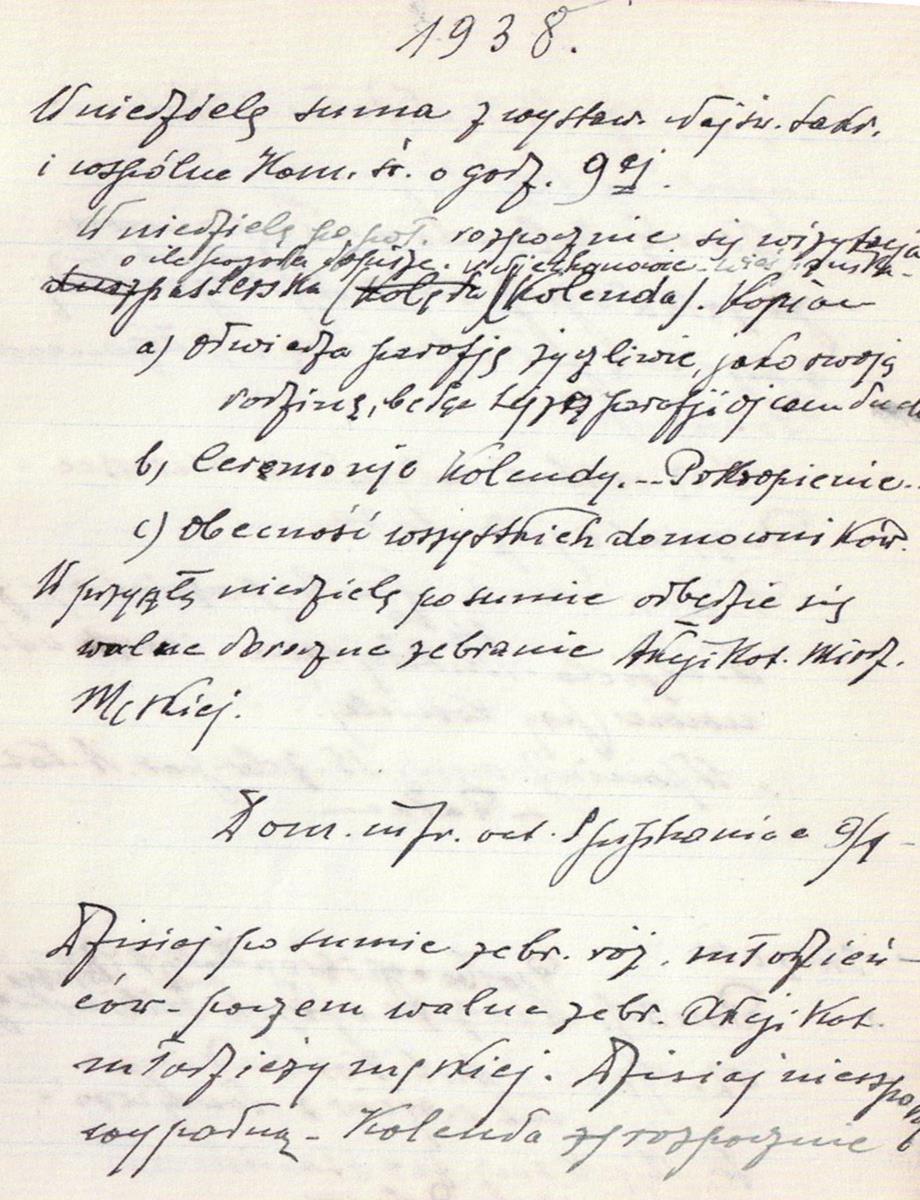 1938.
W niedzielę suma z wystaw. Najśw. Sakr.
i wspólna Kom. św. o godz. 9ej.
W niedzielę po poł. rozpocznie się wizytacja
o ile pogoda dopisze.
pasterska (Kolęda) (Kolenda).
a) odwiedza parafję życzliwie, jako swoją
rodzinę, będąc tejże parafji ojcem
b) Ceremonje Kolendy. -- Pokropienie --
c) obecność wszystkich domowników.
W przyszłą niedzielę po sumie odbędzie się
walne doroczne zebranie Akcji Kat. Młodz.
Męskiej.
Dom. infr. oct. Epiphaniae 9/I -
Dzisiaj po sumie zebr. róż. młodzień-
ców - poczem walne zebr. Akcji Kat.
młodzieży męskiej. Dzisiaj nieszpory
wypadną - Kolenda rozpocznie